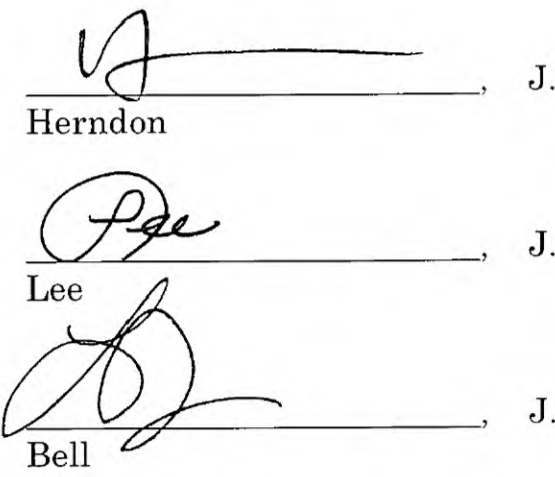 , J.
Herndon
Lee
, J.
Lee
, J.
Bell